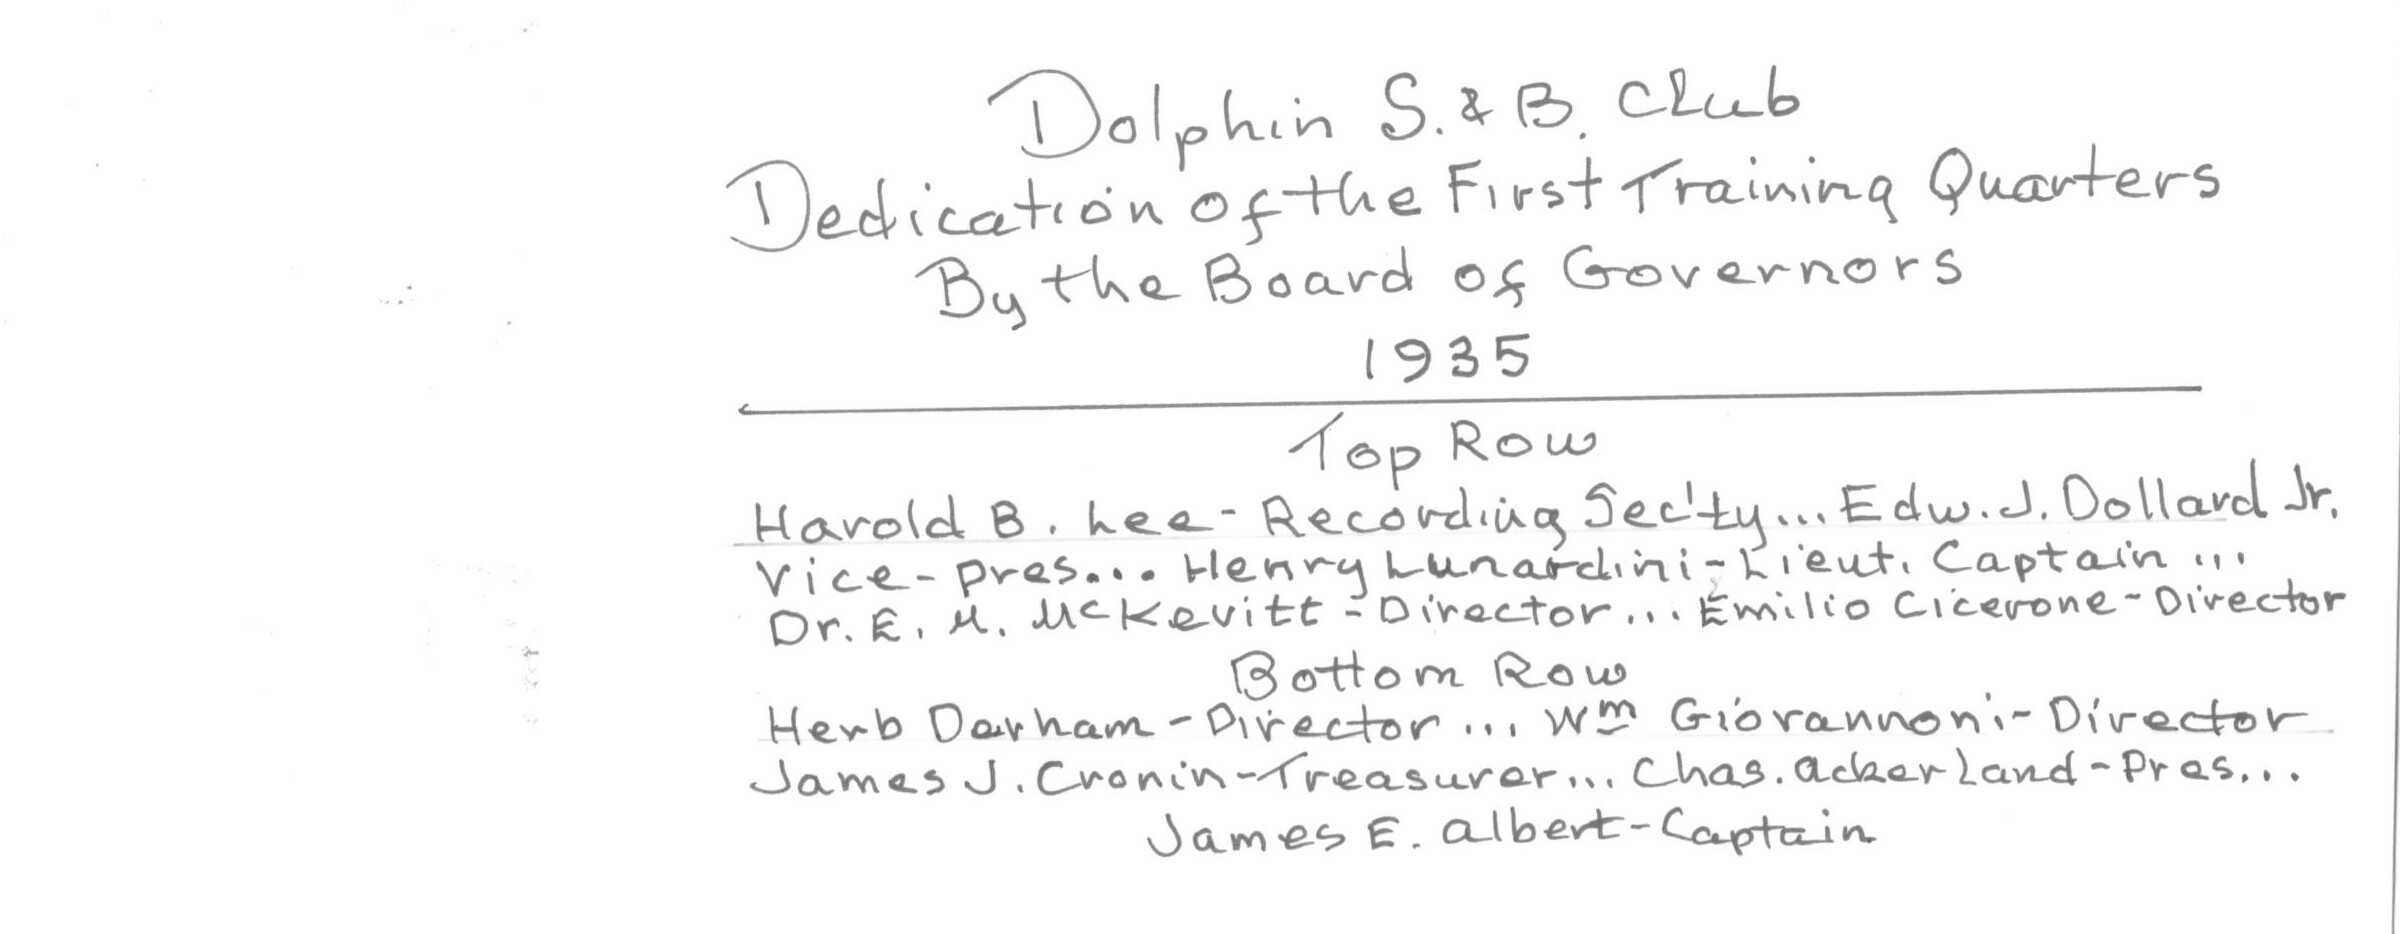 Dolphin S. & B. Club
Dedication of the First Training Quarters
By the Board of Governors
1935
Top Row
Harold B. Lee - Recording Sec'ty... Edw. J. Dollard Jr.
Vice-pres... Henry Lunardini - Lieut. Captain ...
Dr. E. M. McKevitt - Director... Emilio Cicerone - Director
Bottom Row
Herb Darham - Director ... Wm Giovannoni - Director
James J. Cronin - Treasurer... Chas. Ackerland - Pres...
James E. Albert - Captain